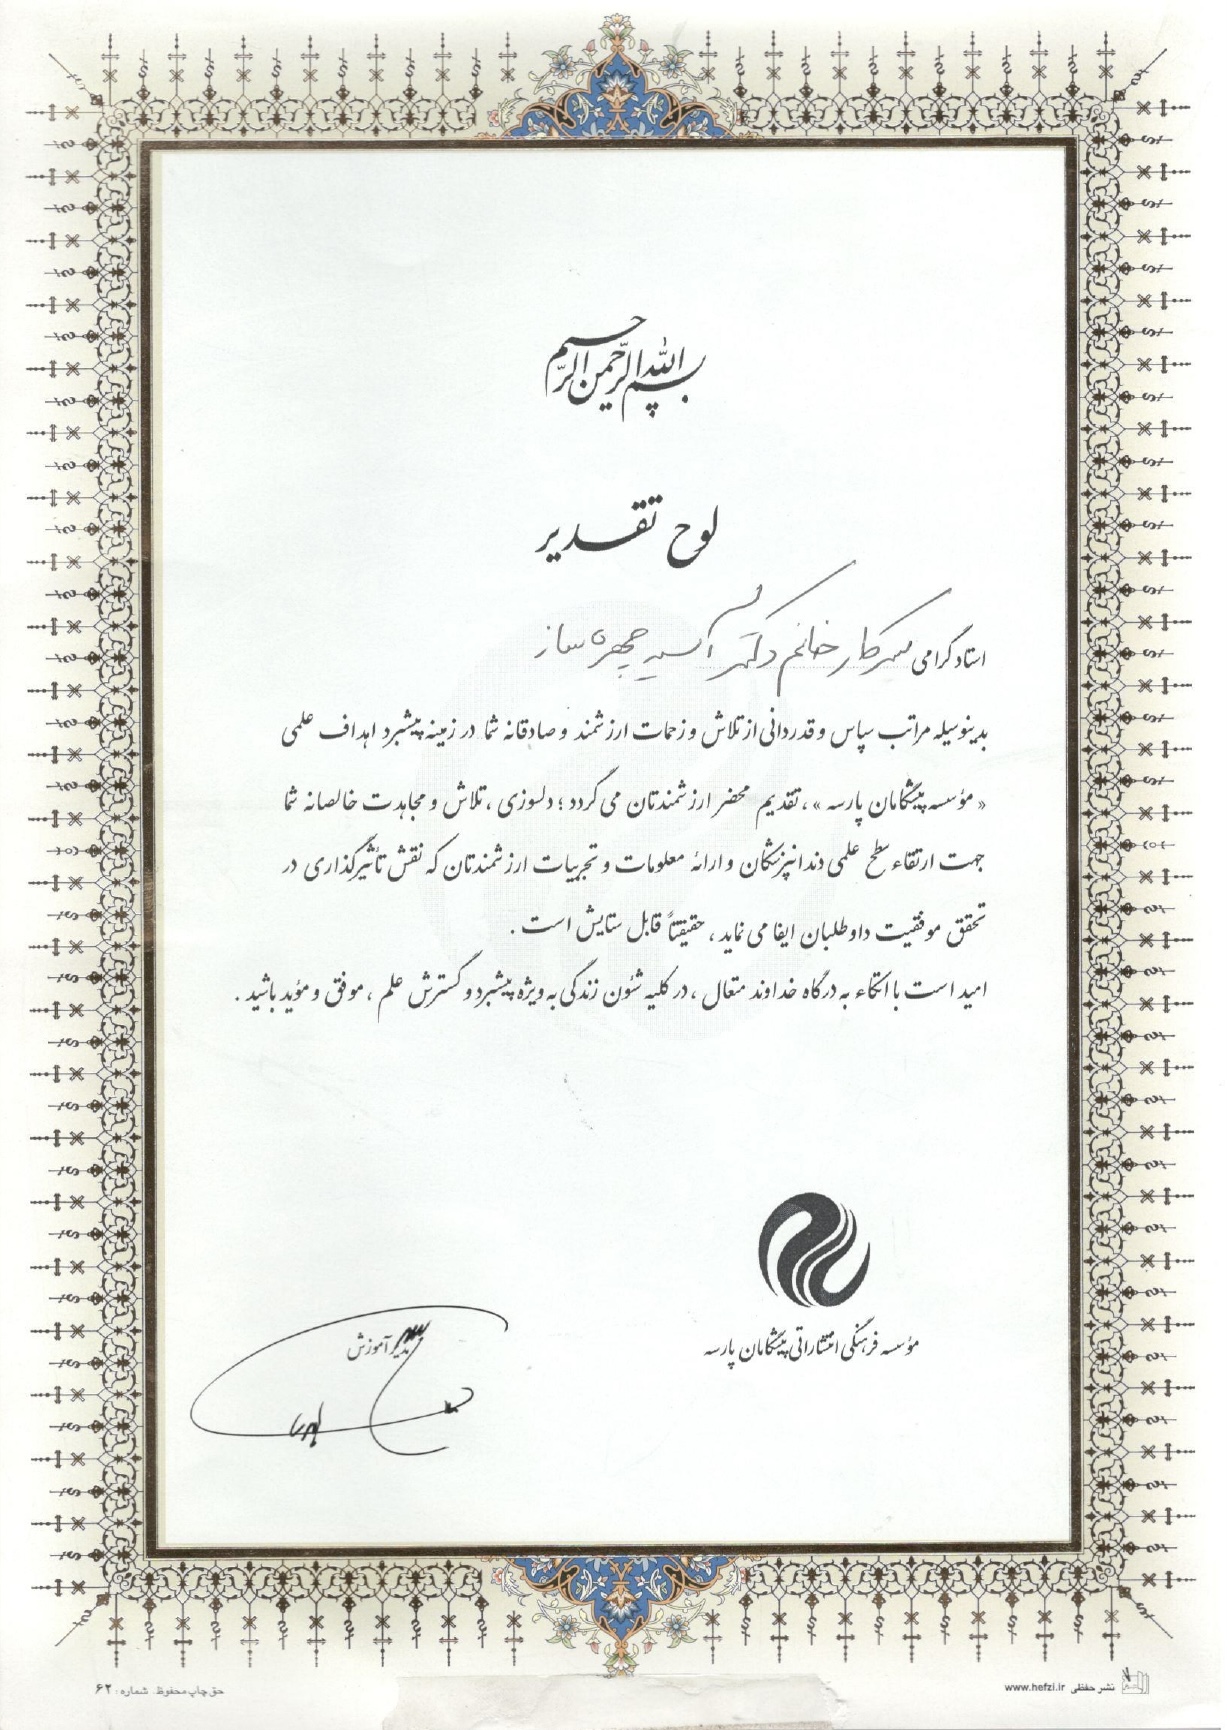 بسم الله الرحمن الرحیم
لوح تقدیر
استاد گرامی سرکار خانم دکتر آسیه چهره ساز
بدینوسیله مراتب سپاس و قدردانی از تلاش و زحمات ارزشمند و صادقانه شما در زمینه پیشبرد اهداف علمی
« مؤسسه پیشگامان پارسه »، تقدیم محضر ارزشمندتان می گردد ؛ دلسوزی ، تلاش و مجاهدت خالصانه شما
جهت ارتقاء سطح علمی دندانپزشکان و ارائه معلومات و تجربیات ارزشمندتان که نقش تأثیرگذاری در
تحقق موفقیت داوطلبان ایفا می نماید ، حقیقتاً قابل ستایش است .
امید است با اتکاء به درگاه خداوند متعال ، در کلیه شئون زندگی به ویژه پیشبرد و گسترش علم ، موفق و مؤید باشید .
مؤسسه فرهنگی انتشاراتی پیشگامان پارسه
مدیر آموزش
نشر حفظی www.hefzi.ir
حق چاپ محفوظ. شماره: ۶۲